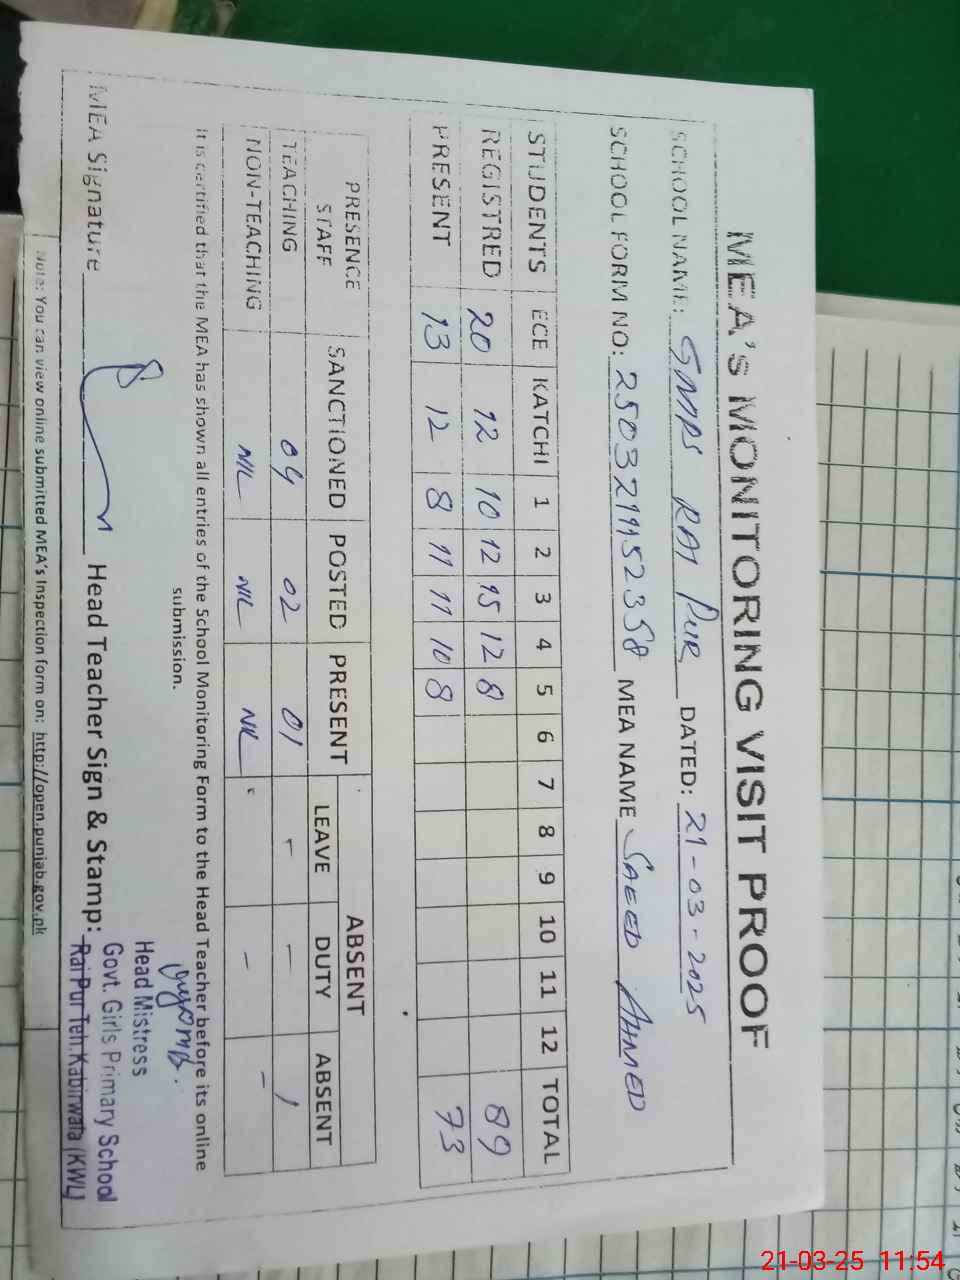 MEA'S MONITORING VISIT PROOF
SCHOOL NAME: GMPS RAI PUR DATED: 21-03-2025
SCHOOL FORM NO: 2503211152358 MEA NAME SAEED AHMED
STUDENTS ECE KATCHI 1 2 3 4 5 6 7 8 9 10 11 12 TOTAL
REGISTRED 20 12 10 12 15 12 8 89
PRESENT 13 12 8 11 11 10 8 73
PRESENCE STAFF SANCTIONED POSTED PRESENT ABSENT
LEAVE DUTY ABSENT
TEACHING 04 02 01 - - 1
NON-TEACHING NIL NIL NIL - - -
It is certified that the MEA has shown all entries of the School Monitoring Form to the Head Teacher before its online
submission.
MEA Signature Head Teacher Sign & Stamp:
Head Mistress
Govt. Girls Primary School
Rai Pur Teh. Kabirwala (KWL)
Note: You can view online submitted MEA's Inspection form on: http://open.punjab.gov.pk
21-03-25 11:54